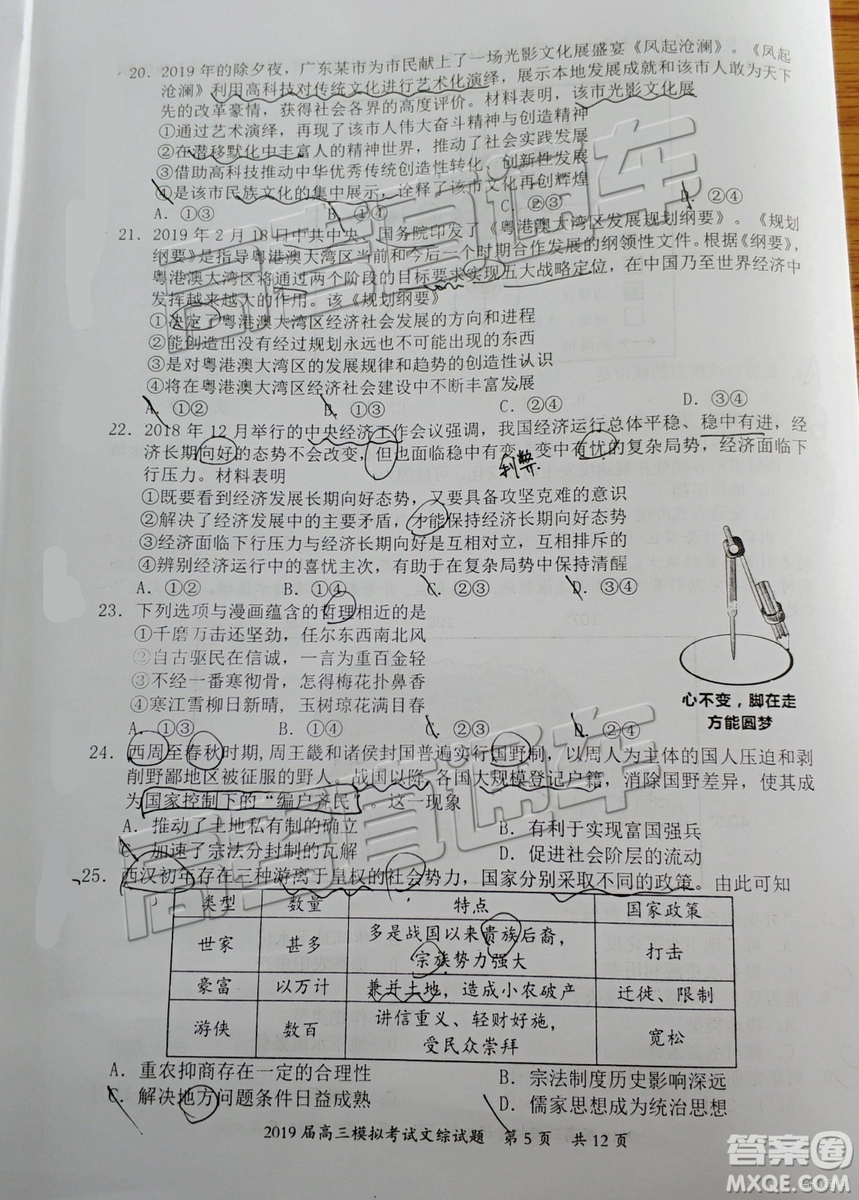 20. 2019 年的除夕夜，广东某市为市民献上了一场光影文化展盛宴《风起沧澜》。《风起
沧澜》利用高科技对传统文化进行艺术化演绎，展示本地发展成就和该市人敢为天下
先的改革豪情，获得社会各界的高度评价。材料表明，该市光影文化展
①通过艺术演绎，再现了该市人伟大奋斗精神与创造精神
②在潜移默化中丰富人的精神世界，推动了社会实践发展
③借助高科技推动中华优秀传统创造性转化、创新性发展
④是该市民族文化的集中展示，诠释了该市文化再创辉煌
A. ①③ B. ①④ C. ②③ D. ②④
21. 2019 年 2 月 18 日中共中央、国务院印发了《粤港澳大湾区发展规划纲要》。《规划
纲要》是指导粤港澳大湾区当前和今后一个时期合作发展的纲领性文件。根据《纲要》，
粤港澳大湾区将通过两个阶段的目标要求实现五大战略定位，在中国乃至世界经济中
发挥越来越大的作用。该《规划纲要》
①决定了粤港澳大湾区经济社会发展的方向和进程
②能创造出没有经过规划永远也不可能出现的东西
③是对粤港澳大湾区的发展规律和趋势的创造性认识
④将在粤港澳大湾区经济社会建设中不断丰富发展
A. ①② B. ①③ C. ②④ D. ③④
22. 2018 年 12 月举行的中央经济工作会议强调，我国经济运行总体平稳、稳中有进，经
济长期向好的态势不会改变，但也面临稳中有变、变中有忧的复杂局势，经济面临下
行压力。材料表明
利弊
①既要看到经济发展长期向好态势，又要具备攻坚克难的意识
②解决了经济发展中的主要矛盾，才能保持经济长期向好态势
③经济面临下行压力与经济长期向好是互相对立、互相排斥的
④辨别经济运行中的喜忧主次，有助于在复杂局势中保持清醒
A. ①② B. ①④ C. ②③ D. ③④
23. 下列选项与漫画蕴含的哲理相近的是
①千磨万击还坚劲，任尔东西南北风
②自古驱民在信诚，一言为重百金轻
③不经一番寒彻骨，怎得梅花扑鼻香
④寒江雪柳日新晴，玉树琼花满目春
A. ①③ B. ①④ C. ②③ D. ②④
心不变，脚在走
方能圆梦
24. 西周至春秋时期，周王畿和诸侯封国普遍实行国野制，以周人为主体的国人压迫和剥
削野鄙地区被征服的野人。战国以降，各国大规模登记户籍，消除国野差异，使其成
为国家控制下的“编户齐民”。这一现象
A. 推动了土地私有制的确立 B. 有利于实现富国强兵
C. 加速了宗法分封制的瓦解 D. 促进社会阶层的流动
25. 西汉初年存在三种游离于皇权的社会势力，国家分别采取不同的政策。由此可知
类型 数量 特点 国家政策
世家 甚多 多是战国以来贵族后裔，宗族势力强大 打击
豪富 以万计 兼并土地，造成小农破产 迁徙、限制
游侠 数百 讲信重义、轻财好施，受民众崇拜 宽松
A. 重农抑商存在一定的合理性 B. 宗法制度历史影响深远
C. 解决地方问题条件日益成熟 D. 儒家思想成为统治思想
2019 届高三模拟考试文综试题 第 5 页 共 12 页
高考直通车
高考直通车
MXQE答案圈
MXQE.COM